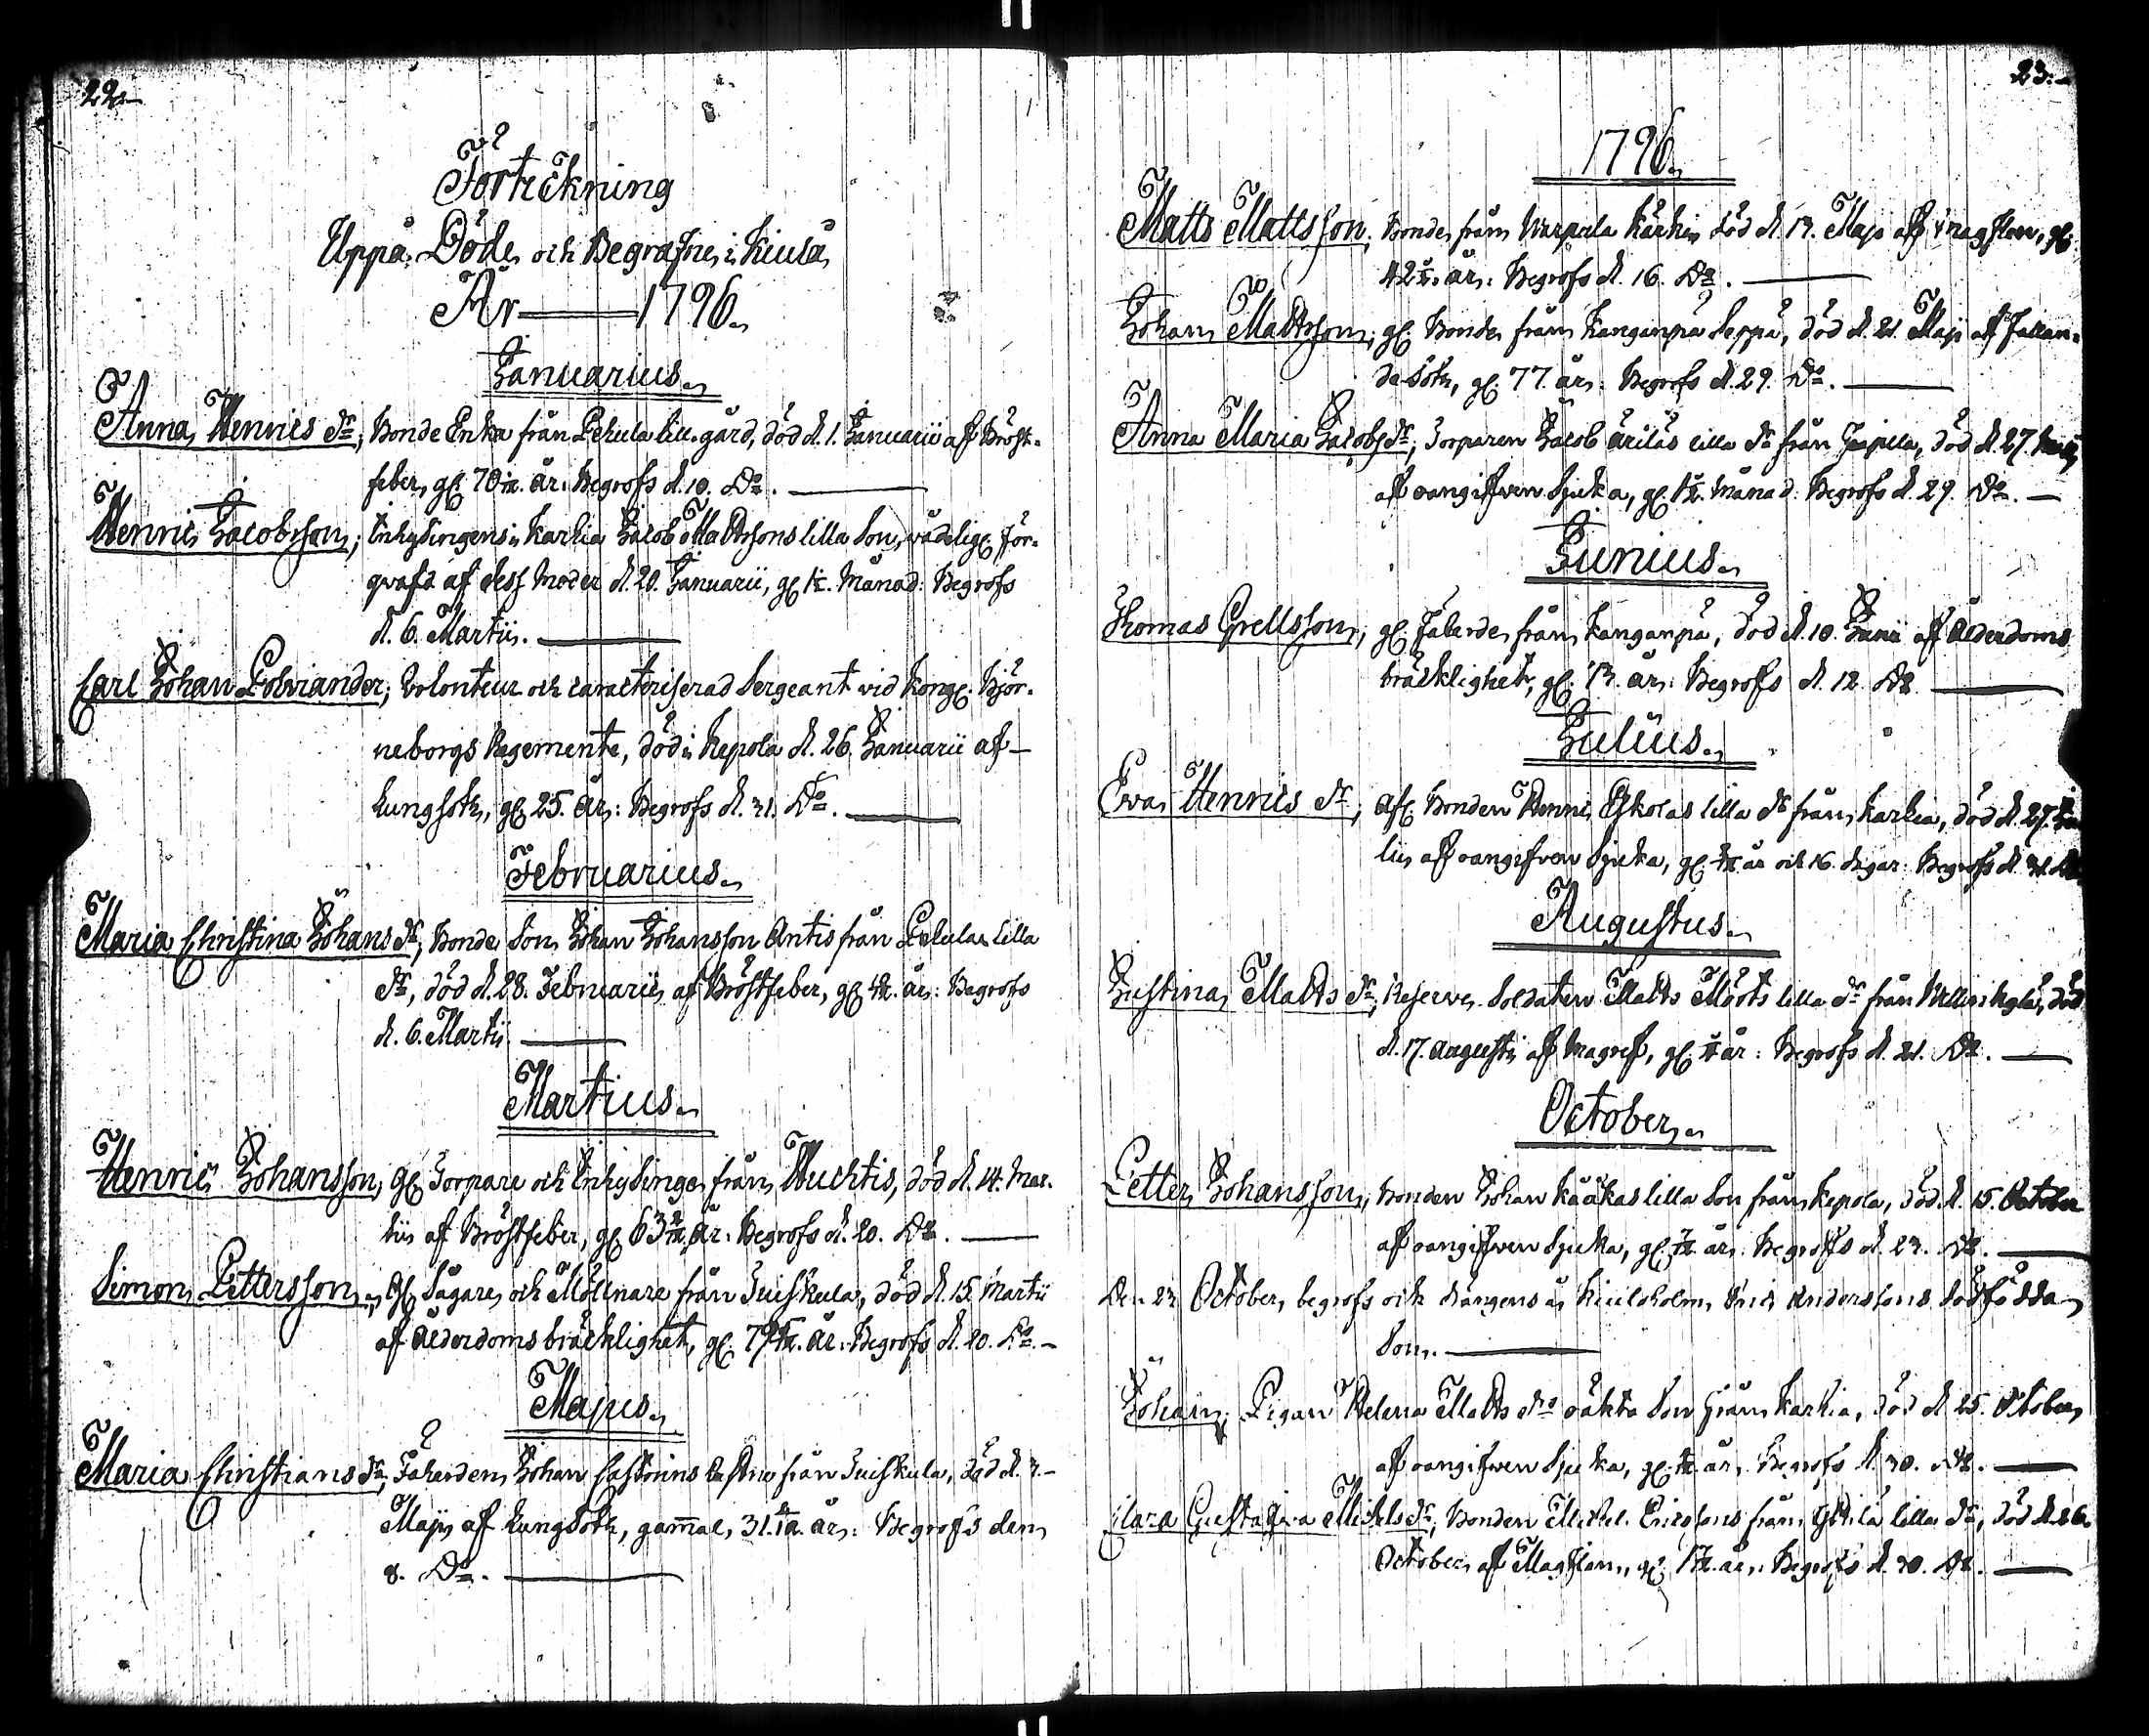 22.
Förtekning
Uppå Döde och Begrafne i Kiula
År 1796.
Januarius.
Anna Henrics dr, Bonde Enka från Pekula lillegård, död d. 1. Januarii af Bröst-
feber, gl. 70 år. Begrofs d. 10. Do.
Henric Jacobsson, Inhysingens i Karkia Jacob Mattssons lilla Son, wådelig. för-
qvafd af dess Moder d. 20. Januarii, gl. Månad. Begrofs
d. 6. Martii.
Carl Johan Polviander, Volonteur och caracteriserad Sergeant vid Kongl. Björ-
neborgs Regemente, död i Kepola d. 26. Januarii af
Lungsoth, gl. 25. år: Begrofs d. 31. Do.
Februarius.
Maria Christina Johans dr, Bonde Son Johan Johansson Antis från Pekula lilla
dr, död d. 28. Februarii af Bröstfeber, gl. år: Begrofs
d. 6. Martii
Martius.
Henric Johansson, gl. Torpare och Inhysinge från Huchtis, död d. 14. Mar-
tii af Bröstfeber, gl. 63 år: Begrofs d. 20. Do.
Simon Pettersson, gl. Sågare och Möllnare från Juiskula, död d. 15. Martii
af ålderdoms bräcklighet, gl. 79 år. Begrofs d. 20. Do.
Majus.
Maria Christians dr, Johan från Juiskula, död d. 3.
Maji af Lungsoth, gammal, 31. år: Begrofs den
8. Do.
23.
1796.
Matts Mattsson, Bonde från Karhi, död d. 13. Maji af gl.
42 år: Begrofs d. 16. Do.
Johan Mattsson, gl. Bonde från Kanganpä Seppä, död d. 21. Maji af fallan-
de soth, gl. 77. år: Begrofs d. 29. Do.
Anna Maria Jacobs dr, Torparen Jacob lilla dr från död d. 27. Maji
af oangifwen Sjuka, gl. Månad: Begrofs d. 29. Do.
Junius.
Thomas Grellsson, gl. från Kanganpä, död d. 10. Junii af ålderdoms
bräcklighet, gl. år: Begrofs d. 12. Do
Julius.
Ewa Henrics dr, afl. Bonden Henric Eskolas lilla dr från Karkia, död d. 27. Ju-
lii af oangifwen Sjuka, gl. år och 16. dagar: Begrofs d. 31. Do.
Augustus.
Justina Matts dr, Reserve Soldaten Matts lilla dr från död
d. 17. Augusti af Magref, gl. år: Begrofs d. 21. Do.
October.
Petter Johansson, Bonden Johan Kääkas lilla Son från Kepola, död d. 15. October
af oangifwen Sjuka, gl. år: Begrofs d. 23. Do.
Den 23 October begrofs och drängens å Kiuloholm Eric Anderssons dödfödda
Son.
Johan, Pigan Helena Matts drs oäkta Son från Karkia, död d. 25. October
af oangifwen Sjuka, gl. år. Begrofs d. 30. Do.
Clara Gustava Michels dr, Bonden Michel Ericssons från lilla dr, död d. 26.
October af gl. år: Begrofs d. 30. Do.